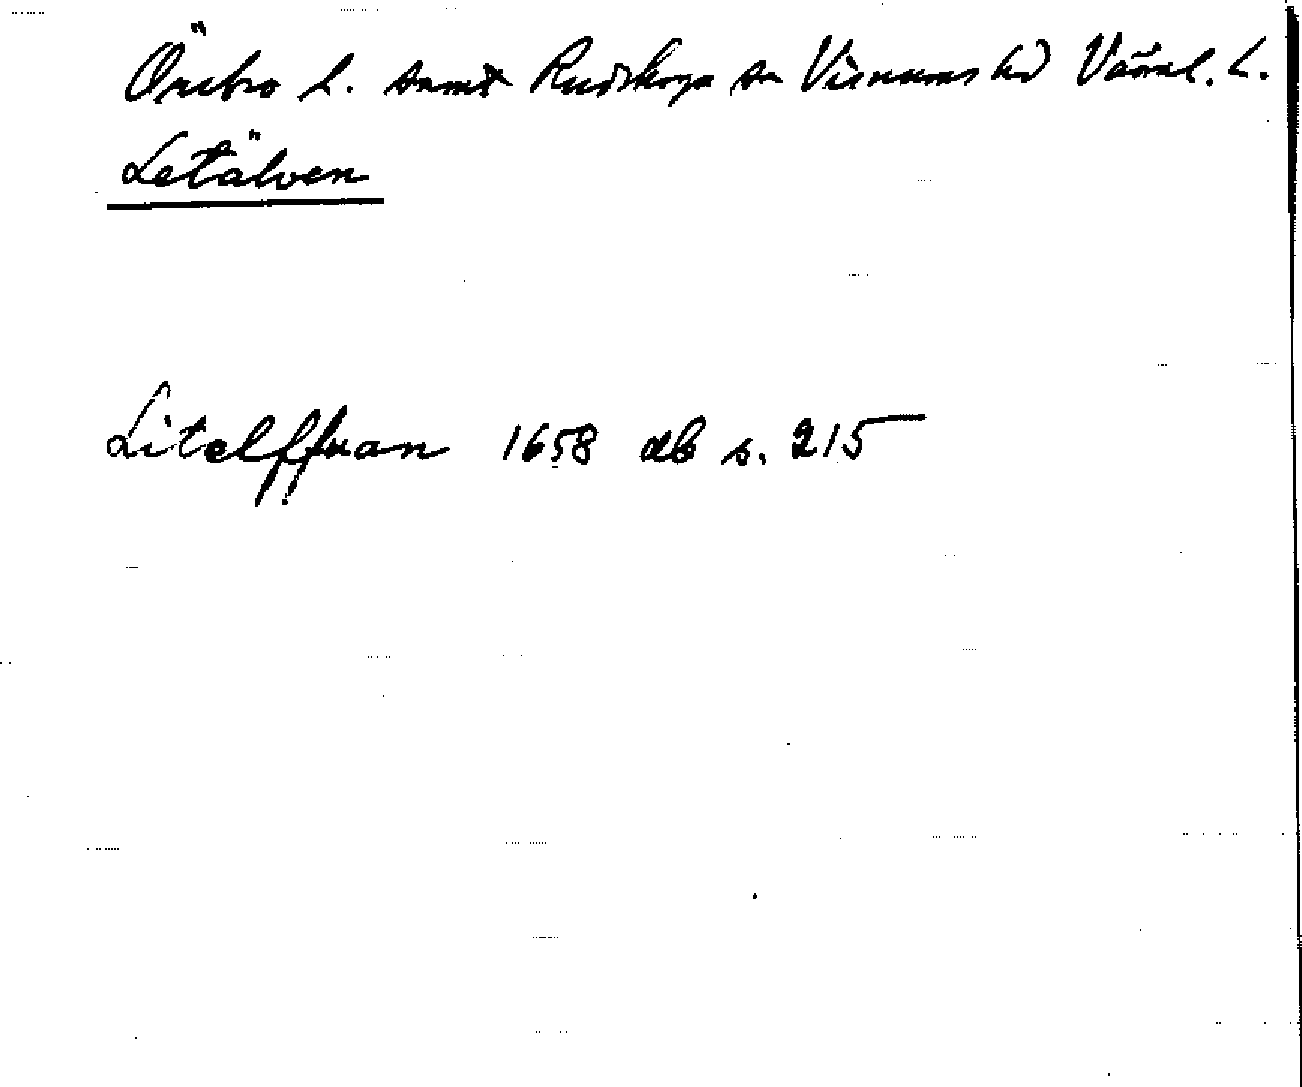 Örebro L. samt Rudskoga sn Visnums hd Värml. L.
Letälven
Litelffuan 1658 db s. 215